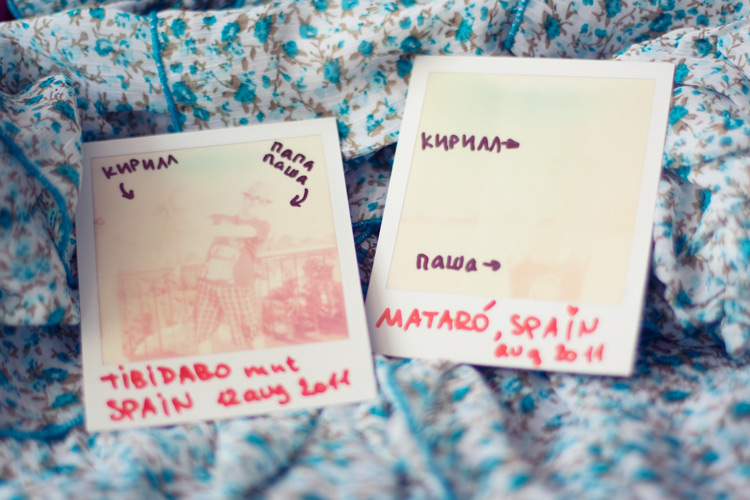 КИРИЛЛ
ПАПА
ПАША
TiBiDABO mnt
SPAiN 12 aug 2011
КИРИЛЛ
ПАША
MATARÓ, SPAiN
aug 2011